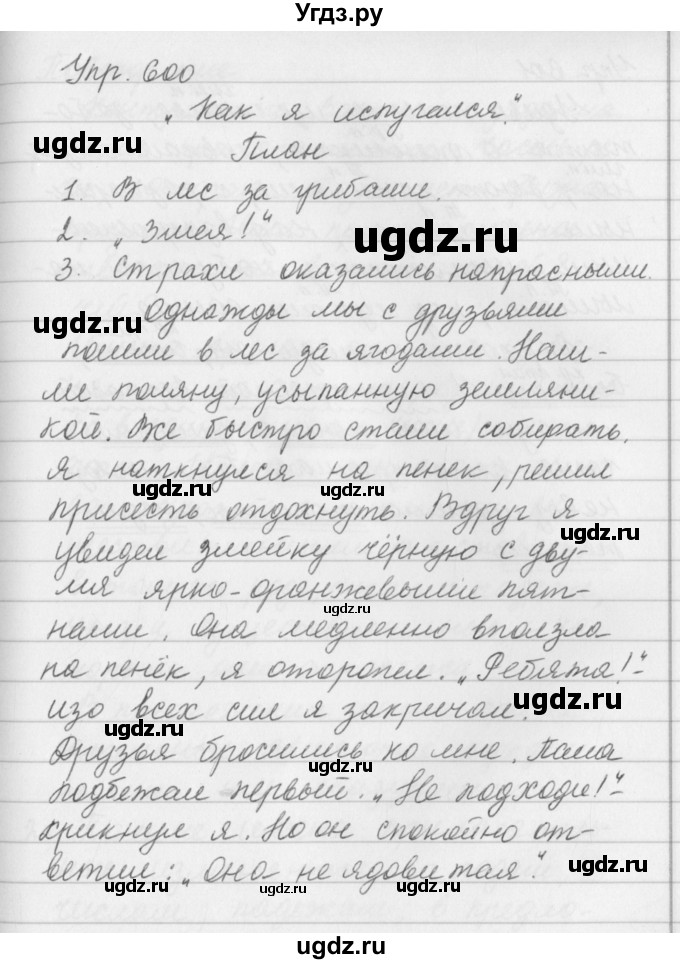 Угдз.ру
Упр. 600
„Как я испугался."
ugdz.ru
План
1. В лес за грибами.
ugdz.ru
2. „Змея!"
3. Страхи оказались напрасными.
Однажды мы с друзьями
ugdz.ru
пошли в лес за ягодами. Наш-
ли поляну, усыпанную земляни-
кой. Все быстро стали собирать.
Я наткнулся на пенек, решил
ugdz.ru
ugdz.ru
присесть отдохнуть. Вдруг я
ugdz.ru
увидел змейку чёрную с дву-
мя ярко-оранжевыми пят-
ugdz.ru
нами. Она медленно вползла
на пенёк, я оторопел. „Ребята!"-
ugdz.ru
изо всех сил я закричал.
ugdz.ru
Друзья бросились ко мне. Папа
ugdz.ru
подбежал первый. „Не подходи!"-
крикнул я. Но он спокойно от-
ugdz.ru
ветил: „Она не ядовитая".
ugdz.ru
ugdz.ru
ugdz.ru
ugdz.ru